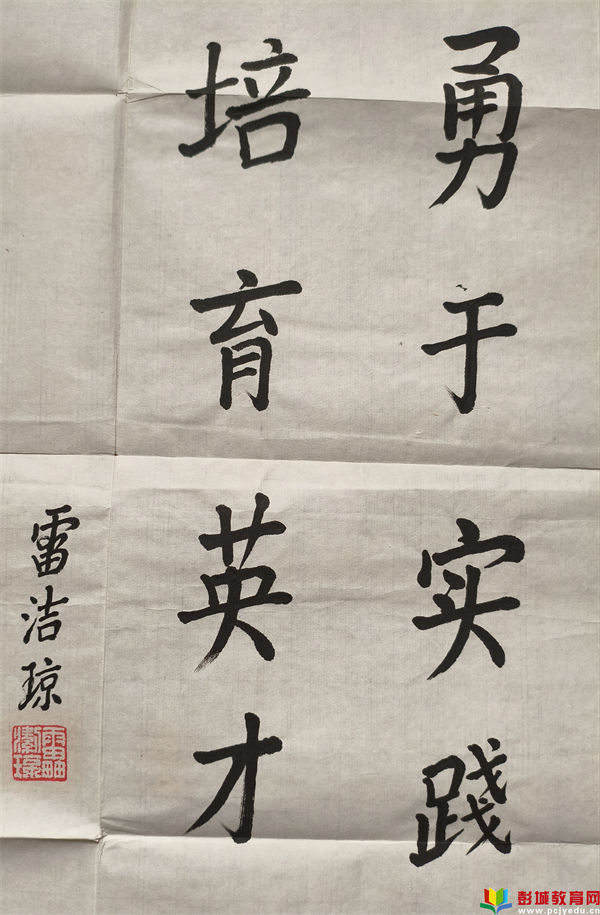 勇于实践
培育英才
雷洁琼
雷洁琼
彭城教育网
www.pcjyedu.cn